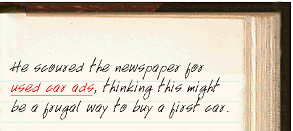 He scoured the newspaper for
used car ads, thinking this might
be a frugal way to buy a first car.